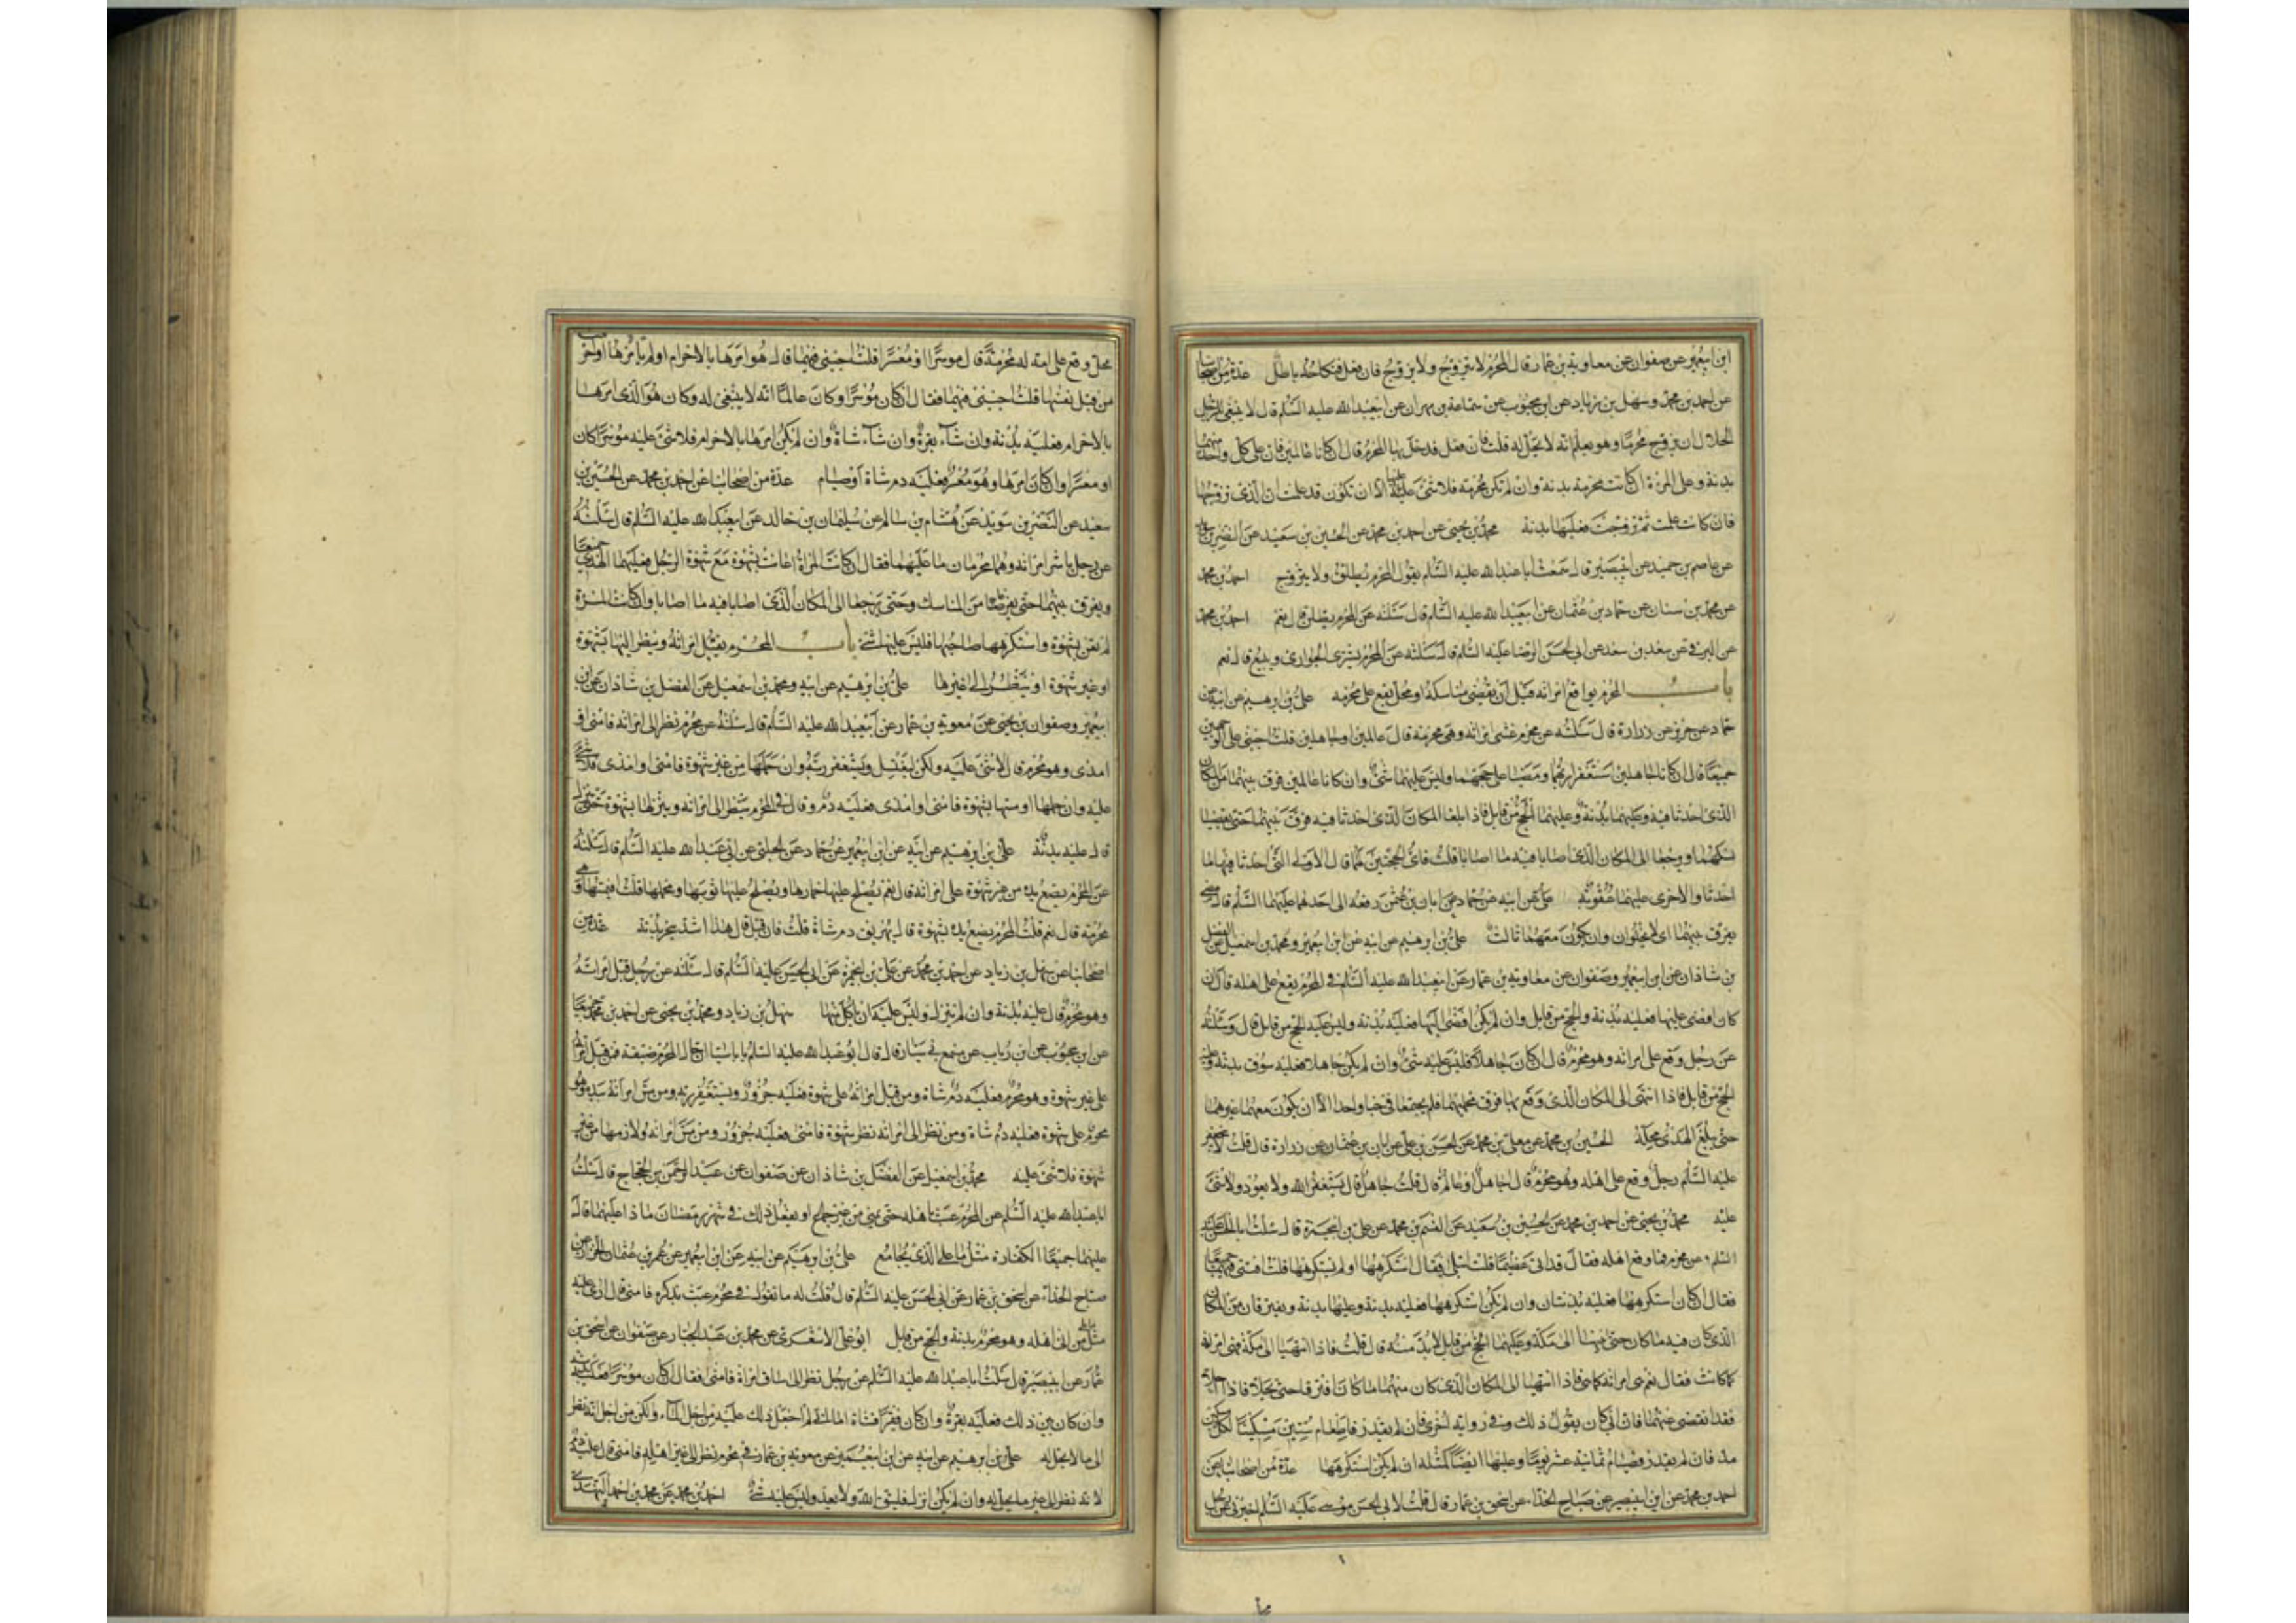 ابن ابيعمير عن صفوان عن معاوية بن عمار قال المحرم لا يتزوج ولا يزوج فان فعل فنكاحه باطل عدة من اصحابنا
عن احمد بن محمد وسهل بن زياد عن ابن محبوب عن سماعة بن مهران عن ابيعبد الله عليه السلم قال لا ينبغي للرجل
الحلال ان يزوج محرما وهو يعلم انه لا يحل له قلت فان فعل فدخل بها المحرم قال ان كانا عالمين فان على كل واحد منهما
بدنة وعلى المرءة ان كانت محرمة بدنة وان لم تكن محرمة فلا شئ عليها الا ان تكون قد علمت ان الذي تزوجها
فان كانت علمت ثم تزوجت فعليها بدنة محمد بن يحيى عن احمد بن محمد عن الحسين بن سعيد عن النضر بن
عن عاصم بن حميد عن ابيبصير قال سمعت ابا عبد الله عليه السلم يقول المحرم يطلق ولا يتزوج احمد بن محمد
عن محمد بن سنان عن حماد بن عثمان عن ابيعبد الله عليه السلم قال سئلته عن المحرم يطلق قال نعم احمد بن محمد
عن البرقي عن سعد بن سعد عن ابي الحسن الرضا عليه السلم قال سئلته عن المحرم يشتري الجواري ويبيع قال نعم
باب المحرم يواقع امراته قبل ان يقضي مناسكه او محل يقع على محرمة علي بن ابرهيم عن ابيه عن
حماد عن حريز عن زرارة قال سئلته عن محرم غشي امراته وهي محرمة قال عالمين او جاهلين قلت اجبني على الوجهين
جميعا قال ان كانا جاهلين استغفرا ربهما ومضيا على حجهما وليس عليهما شئ وان كانا عالمين فرق بينهما من المكان
الذي احدثا فيه وعليهما بدنة وعليهما الحج من قابل فاذا بلغا المكان الذي احدثا فيه فرق بينهما حتى يقضيا
نسكهما ويرجعا الى المكان الذي اصابا فيه ما اصابا قلت فاي الحجتين لهما قال الاولى التي احدثا فيها ما
احدثا والاخرى عليهما عقوبة علي عن ابيه عن حماد عن ابان بن عثمن رفعه الى احدهما عليهما السلم قال معنى
يفرق بينهما اي لا يخلوان وان يكون معهما ثالث علي بن ابرهيم عن ابيه عن ابن ابيعمير ومحمد بن اسمعيل عن الفضل
بن شاذان عن ابن ابيعمير وصفوان عن معاوية بن عمار عن ابيعبد الله عليه السلم في المحرم يقع على اهله قال ان
كان افضى عليها فعليه بدنة والحج من قابل وان لم يكن افضى اليها فعليه بدنة وليس عليه الحج من قابل قال وسئلته
عن رجل وقع على امراته وهو محرم قال ان كان جاهلا فليس عليه شئ وان لم يكن جاهلا فعليه سوق بدنة وعليه
الحج من قابل فاذا انتهى الى المكان الذي وقع بها فرق محملهما فلم يجتمعا في خباء واحد الا ان يكون معهما غيرهما
حتى يبلغ الهدي محله الحسين بن محمد عن معلى بن محمد عن الحسن بن علي عن ابان بن عثمان عن زرارة قال قلت لابي جعفر
عليه السلم رجل وقع على اهله وهو محرم قال اجاهل او عالم قال قلت جاهل قال يستغفر الله ولا يعود ولا شئ
عليه محمد بن يحيى عن احمد بن محمد عن الحسين بن سعيد عن القسم بن محمد عن علي بن ابيحمزة قال سئلت ابا الحسن عليه
السلم عن محرم واقع اهله فقال قد اتى عظيما قلت ابتلي فقال استكرهها او لم يستكرهها قلت افتني فيهما جميعا
فقال ان كان استكرهها فعليه بدنتان وان لم يكن استكرهها فعليه بدنة وعليها بدنة ويفترقان من المكان
الذي كان فيه ما كان حتى ينتهيا الى مكة وعليهما الحج من قابل لا بد منه قال قلت فاذا انتهيا الى مكة فهي امراته
كما كانت فقال نعم هي امراته كما هي فاذا انتهيا الى المكان الذي كان منهما ما كان افترقا حتى يحلا فاذا احلا
فقد انقضى عنهما فان ابي كان يقول ذلك وفي رواية اخرى فان لم يقدر فاطعام ستين مسكينا لكل مسكين
مد فان لم يقدر فصيام ثمانية عشر يوما وعليها ايضا كمثله ان لم يكن استكرهها عدة من اصحابنا عن
احمد بن محمد عن ابن ابينصر عن صباح الحذاء عن اسحق بن عمار قال قلت لابي الحسن موسى عليه السلم اخبرني عن رجل
محل وقع على امة له محرمة قال موسرا او معسرا قلت اجبني فيهما قال هو امرها بالاحرام او لم يامرها او احرمت
من قبل نفسها قلت اجبني فيهما فقال ان كان موسرا وكان عالما انه لا ينبغي له وكان هو الذي امرها
بالاحرام فعليه بدنة وان شاء بقرة وان شاء شاة وان لم يكن امرها بالاحرام فلا شئ عليه موسرا كان
او معسرا وان كان امرها وهو معسر فعليه دم شاة او صيام عدة من اصحابنا عن احمد بن محمد عن الحسين بن
سعيد عن النضر بن سويد عن هشام بن سالم عن سليمان بن خالد عن ابيعبد الله عليه السلم قال سئلته
عن رجل باشر امراته وهما محرمان ما عليهما فقال ان كانت المراة اعانت بشهوة مع شهوة الرجل فعليهما الهدي جميعا
ويفرق بينهما حتى يفرغا من المناسك وحتى يرجعا الى المكان الذي اصابا فيه ما اصابا وان كانت المرءة
لم تعن بشهوة واستكرهها صاحبها فليس عليها شئ باب المحرم يقبل امراته وينظر اليها بشهوة
او غير شهوة او ينظر الى غيرها علي بن ابرهيم عن ابيه ومحمد بن اسمعيل عن الفضل بن شاذان عن ابن
ابيعمير وصفوان بن يحيى عن معوية بن عمار عن ابيعبد الله عليه السلم قال سئلته عن محرم نظر الى امراته فامنى او
امذى وهو محرم قال لا شئ عليه ولكن ليغتسل ويستغفر ربه وان حملها من غير شهوة فامنى او امذى فلا شئ
عليه وان حملها او مسها بشهوة فامنى او امذى فعليه دم وقال في المحرم ينظر الى امراته وينزلها بشهوة حتى ينزل
قال عليه بدنة علي بن ابرهيم عن ابيه عن ابن ابيعمير عن حماد عن الحلبي عن ابي عبد الله عليه السلم قال سئلته
عن المحرم يضع يده من غير شهوة على امراته قال نعم يصلح عليها خمارها ويصلح عليها ثوبها ومحملها قلت افيمسها وهي
محرمة قال نعم قلت المحرم يضع يده بشهوة قال يهريق دم شاة قلت فان قبل قال هذا اشد ينحر بدنة عدة من
اصحابنا عن سهل بن زياد عن احمد بن محمد عن علي بن ابيحمزة عن ابي الحسن عليه السلم قال سئلته عن رجل قبل امراته
وهو محرم قال عليه بدنة وان لم ينزل وليس عليه ان ياكل منها سهل بن زياد ومحمد بن يحيى عن احمد بن محمد جميعا
عن ابن محبوب عن ابن رياب عن مسمع ابي سيار قال قال ابو عبد الله عليه السلم يا با سيار ان حال المحرم ضيقة فمن قبل امراته
على غير شهوة وهو محرم فعليه دم شاة ومن قبل امراته على شهوة فعليه جزور ويستغفر ربه ومن مس امراته بيده وهو
محرم على شهوة فعليه دم شاة ومن نظر الى امراته نظر شهوة فامنى فعليه جزور ومن مس امراته ولازمها من غير
شهوة فلا شئ عليه محمد بن اسمعيل عن الفضل بن شاذان عن صفوان عن عبد الرحمن بن الحجاج قال سئلت
ابا عبد الله عليه السلم عن المحرم يعبث باهله حتى يمني من غير جماع او يفعل ذلك في شهر رمضان ماذا عليهما قال
عليهما جميعا الكفارة مثل ما على الذي يجامع علي بن ابرهيم عن ابيه عن ابن ابيعمير عن عمر بن عثمان الخزاز عن
صباح الحذاء عن اسحق بن عمار عن ابي الحسن عليه السلم قال قلت له ما تقول في محرم عبث بذكره فامنى قال ارى عليه
مثل ما على من اتى اهله وهو محرم بدنة والحج من قابل ابو علي الاشعري عن محمد بن عبد الجبار عن صفوان عن اسحق بن
عمار عن ابيبصير قال سئلت ابا عبد الله عليه السلم عن رجل نظر الى ساق امراة فامنى فقال ان كان موسرا فعليه بدنة
وان كان بين ذلك فعليه بقرة وان كان فقيرا فشاة اما اني لم اجعل ذلك عليه من اجل الماء ولكن من اجل انه نظر
الى ما لا يحل له علي بن ابرهيم عن ابيه عن ابن ابيعمير عن معوية بن عمار في محرم نظر الى غير اهله فامنى قال عليه دم
لانه نظر الى غير ما يحل له وان لم يكن انزل فليتق الله ولا يعد وليس عليه شئ احمد بن محمد عن محمد بن احمد النهدي